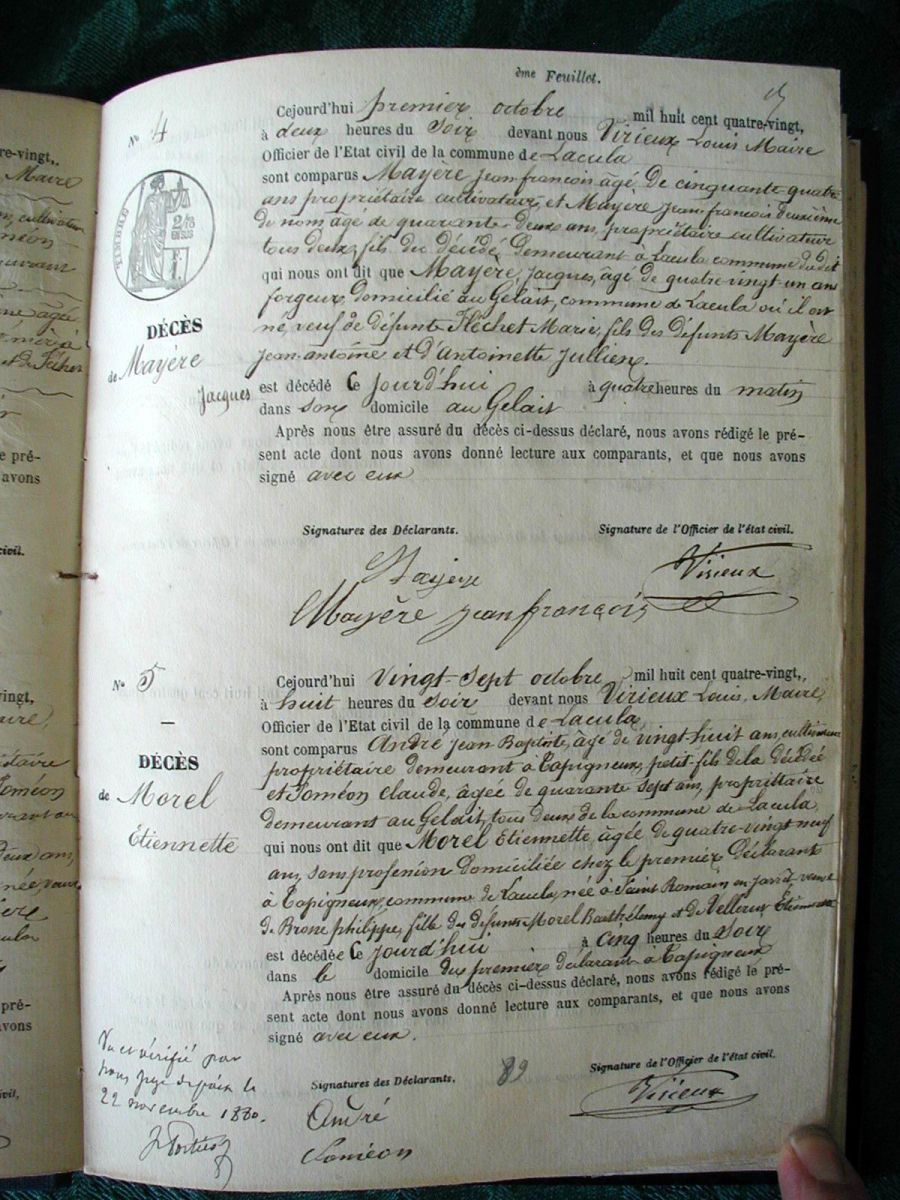 ème Feuillet.
Nº 4
Cejourd'hui premier octobre mil huit cent quatre-vingt,
à deux heures du soir devant nous Virieux Louis Maire
Officier de l'Etat civil de la commune de Lacula
sont comparus Mayère jean françois âgé de cinquante quatre
ans propriétaire cultivateur, et Mayère jean françois deuxième
de nom, âgé de quarante deux ans, propriétaire cultivateur
tous deux fils du décédé, demeurant à Lacula commune du dit
qui nous ont dit que Mayère Jacques, âgé de quatre-vingt-un ans
forgeur, domicilié au Gelait, commune de Lacula où il est
né, veuf de défunte Fléchet Marie, fils des défunts Mayère
Jean-antoine et d'Antoinette Jullien.
est décédé ce jourd'hui à quatre heures du matin
dans son domicile au Gelait
Après nous être assuré du décès ci-dessus déclaré, nous avons rédigé le pré-
sent acte dont nous avons donné lecture aux comparants, et que nous avons
signé avec eux
TIMBRE
2/10
EN SUS
DÉCÈS
de Mayère
Jacques
Signatures des Déclarants.
Signature de l'Officier de l'état civil.
Mayère
Virieux
Mayère jean françois
Nº 5
Cejourd'hui vingt-sept octobre mil huit cent quatre-vingt,
à huit heures du soir devant nous Virieux Louis, Maire,
Officier de l'Etat civil de la commune de Lacula,
sont comparus André jean Baptiste, âgé de vingt-huit ans, cultivateur
propriétaire demeurant à Capigneux, petit-fils de la décédée
et Poméon claude, âgée de quarante sept ans, propriétaire
demeurant au Gelait, tous deux de la commune de Lacula,
qui nous ont dit que Morel Etiennette âgée de quatre-vingt neuf
ans, sans profession domiciliée chez le premier déclarant
à Capigneux, commune de Lacula, née à Saint Romain en jarrêt veuve
de Brosse philippe, fille des défunts Morel Barthélemy et de
est décédée ce jourd'hui à cinq heures du soir
dans le domicile du premier déclarant à Capigneux
Après nous être assuré du décès ci-dessus déclaré, nous avons rédigé le pré-
sent acte dont nous avons donné lecture aux comparants, et que nous avons
signé avec eux.
DÉCÈS
de Morel
Étiennette
Vu et vérifié par
nous juge de paix le
22 novembre 1880.
Signatures des Déclarants.
89
Signature de l'Officier de l'état civil.
André
Virieux
Poméon